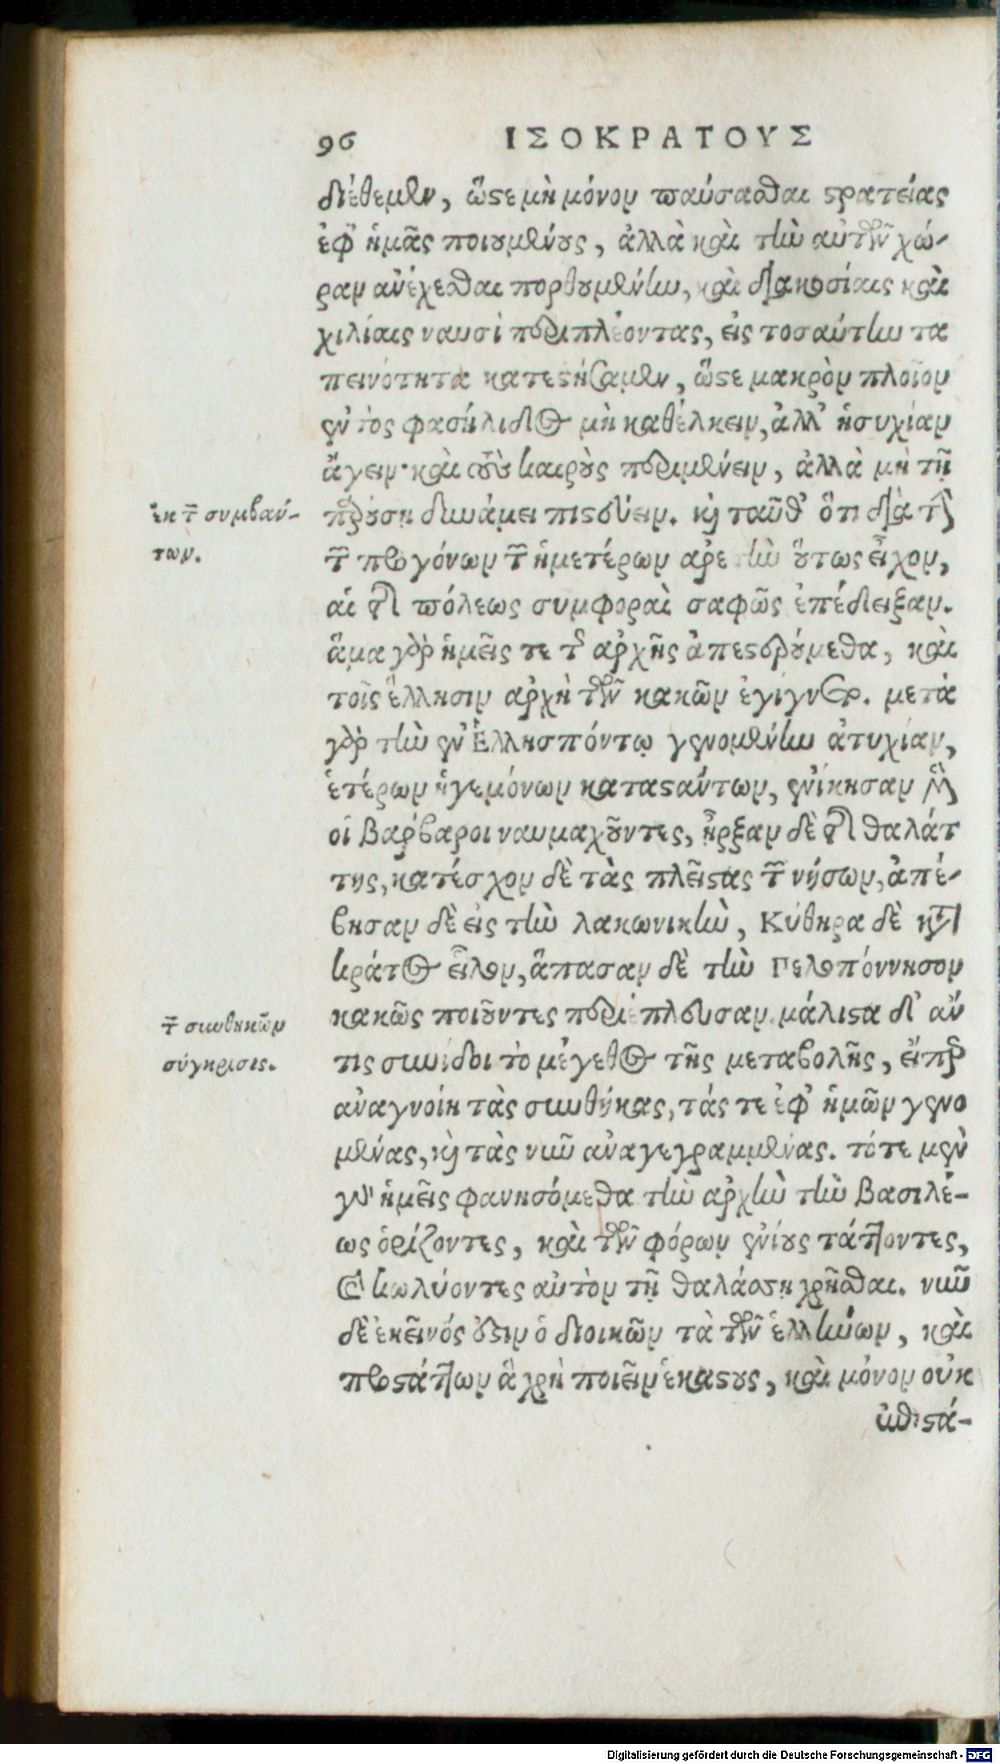 96 ΙΣΟΚΡΑΤΟΥΣ
διέθεμεν, ὥστε μὴ μόνον παύσασθαι στρατείας
ἐφ' ἡμᾶς ποιουμένους, ἀλλὰ καὶ τὴν αὐτῶν χώ-
ραν ἀνέχεσθαι πορθουμένην, καὶ διακοσίαις καὶ
χιλίαις ναυσὶ περιπλέοντας, εἰς τοσαύτην τα
πεινότητα κατεστήσαμεν, ὥστε μακρὸν πλοῖον
ἐντὸς φασήλιδος μὴ καθέλκειν, ἀλλ' ἡσυχίαν
ἄγειν· καὶ τοὺς καιροὺς περιμένειν, ἀλλὰ μὴ τῇ
ἐκ τῶν συμβαν-
των.
παρούσῃ δυνάμει πιστεύειν. καὶ ταῦθ' ὅτι διὰ τὴν
τῶν προγόνων τῶν ἡμετέρων ἀρετὴν οὕτως εἶχον,
αἱ τῆς πόλεως συμφοραὶ σαφῶς ἐπέδειξαν.
ἅμα γὰρ ἡμεῖς τε τῆς ἀρχῆς ἀπεστερούμεθα, καὶ
τοῖς ἕλλησιν ἀρχὴ τῶν κακῶν ἐγίγνετο. μετὰ
γὰρ τὴν ἐν Ἑλλησπόντῳ γενομένην ἀτυχίαν,
ἑτέρων ἡγεμόνων καταστάντων, ἐνίκησαν μὲν
οἱ Βαρβαροι ναυμαχοῦντες, ἦρξαν δὲ τῆς θαλάτ
της, κατέσχον δὲ τὰς πλείστας τῶν νήσων, ἀπέ-
βησαν δὲ εἰς τὴν λακωνικὴν, Κύθηρα δὲ κατὰ
κράτος εἷλον, ἅπασαν δὲ τὴν Πελοπόννησον
τῶν συνθηκῶν
σύγκρισις.
κακῶς ποιοῦντες περιέπλευσαν. μάλιστα δ' ἄν
τις συνίδοι τὸ μέγεθος τῆς μεταβολῆς, εἰ παρ
αναγνοίη τὰς συνθήκας, τάς τε ἐφ' ἡμῶν γενο
μένας, καὶ τὰς νῦν ἀναγεγραμμένας. τότε μὲν
γὰρ ἡμεῖς φανησόμεθα τὴν ἀρχὴν τὴν Βασιλέ-
ως ὁρίζοντες, καὶ τῶν φόρων ἐνίους τάττοντες,
καὶ κωλύοντες αὐτὸν τῇ θαλάσσῃ χρῆσθαι. νῦν
δὲ ἐκεῖνός ἐστιν ὁ διοικῶν τὰ τῶν ἑλλήνων, καὶ
προστάττων ἃ χρὴ ποιεῖν ἑκάστους, καὶ μόνον οὐκ
ἐπιστά-
Digitalisierung gefördert durch die Deutsche Forschungsgemeinschaft - DFG